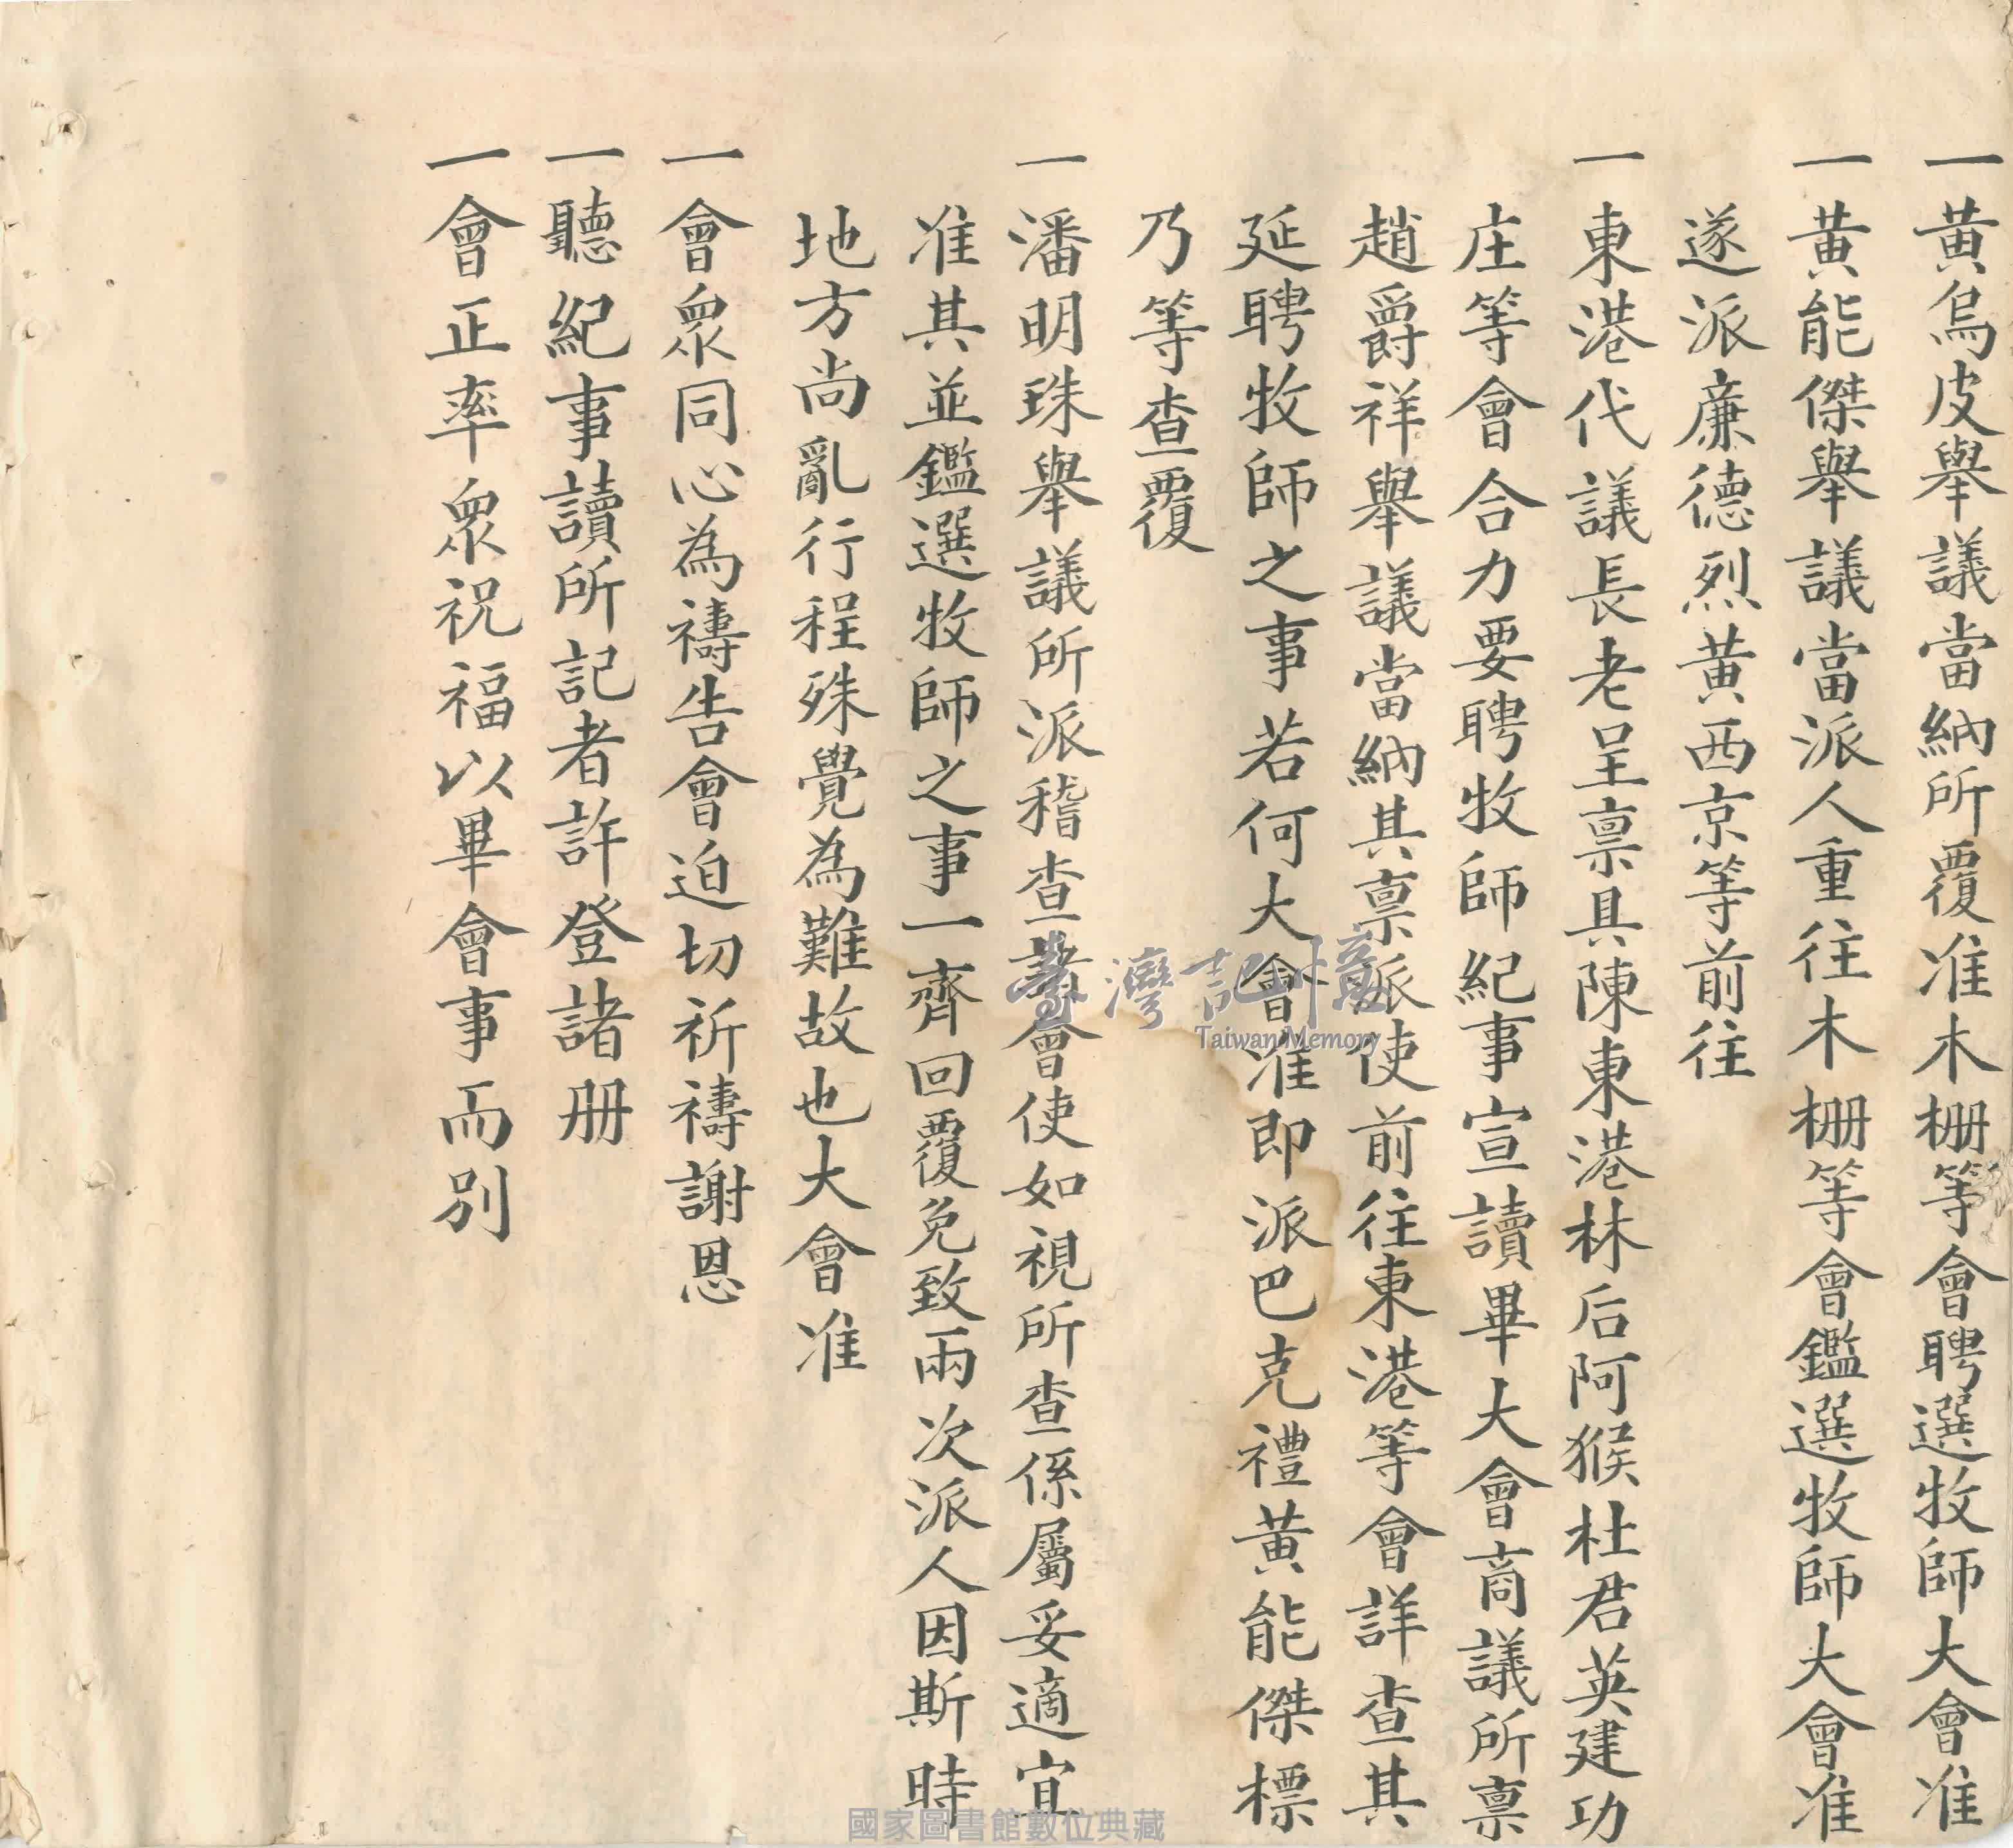 一黃烏皮舉議當納所覆准木柵等會聘選牧師大會准
一黃能傑舉議當派人重往木柵等會鑑選牧師大會准
遂派廉德烈黃西京等前往
一東港代議長老呈禀具陳東港林后阿猴杜君英建功
庄等會合力要聘牧師紀事宣讀畢大會商議所禀
趙爵祥舉議當納其禀派使前往東港等會詳查其
延聘牧師之事若何大會准即派巴克禮黃能傑標
乃等查覆
一潘明珠舉議所派稽查會使如視所查係屬妥適宜
准其並鑑選牧師之事一齊回覆免致兩次派人因斯時
地方尚亂行程殊覺為難故也大會准
一會眾同心為禱告會迫切祈禱謝恩
一聽紀事讀所記者許登諸册
一會正率眾祝福以畢會事而別
臺灣記憶
Taiwan Memory
國家圖書館數位典藏